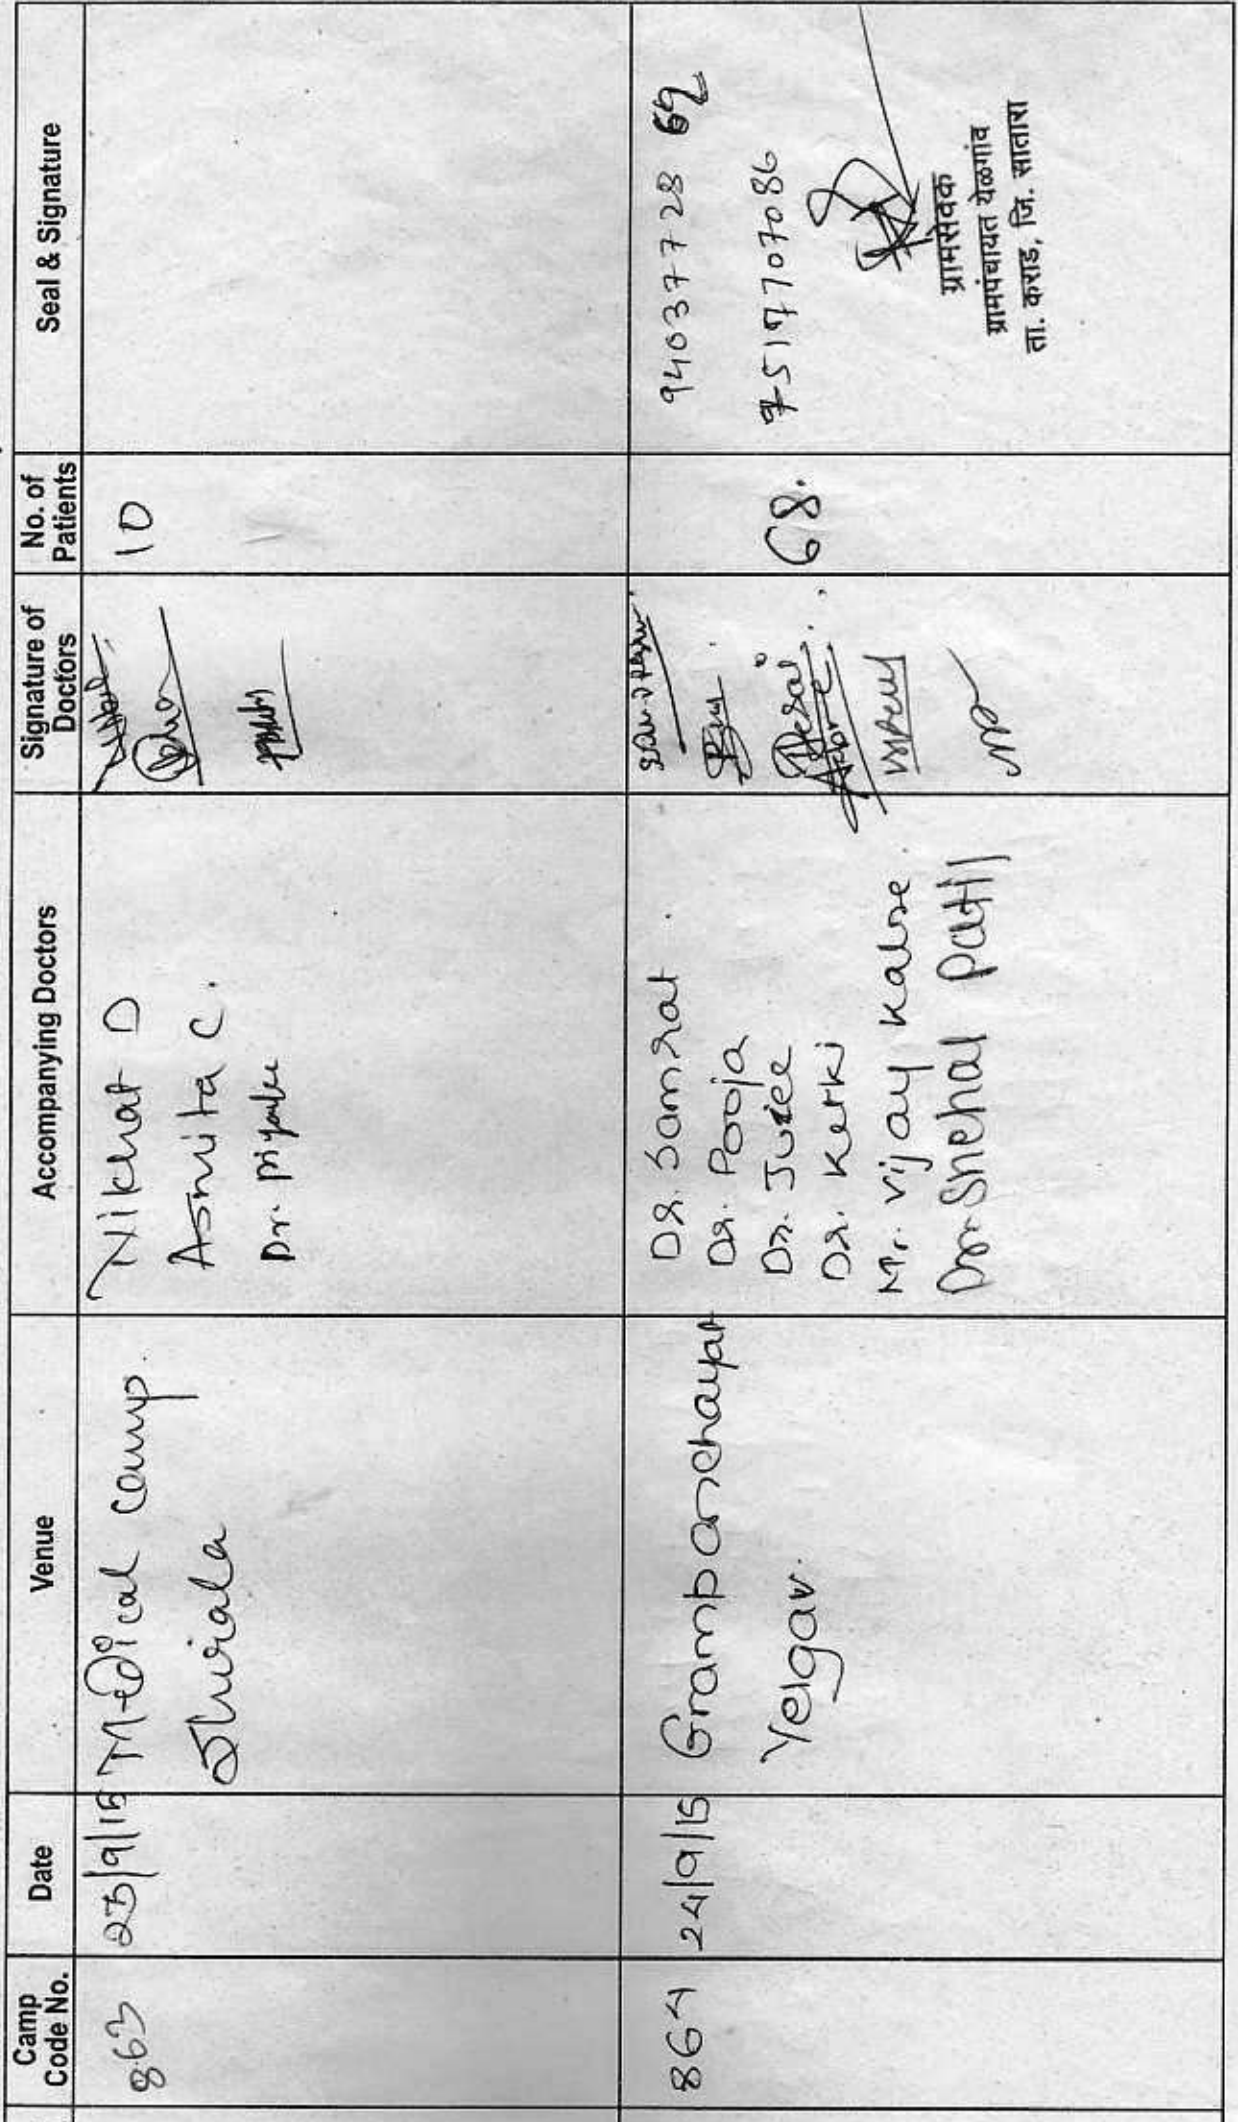 Camp Code No.
Date
Venue
Accompanying Doctors
Signature of Doctors
No. of Patients
Seal & Signature
863
23/9/15
Medical camp.
Shirala
Nikhat D
Asmita C.
Dr.
10
864
24/9/15
Grampanchayat
Yelgav.
Dr. Samrat.
Dr. Pooja
Dr. Juiee
Dr. Ketki
Mr. Vijay Kalse.
Dr. Snehal Patil
Desai
68.
ग्रामसेवक
ग्रामपंचायत येळगांव
ता. कराड, जि. सातारा